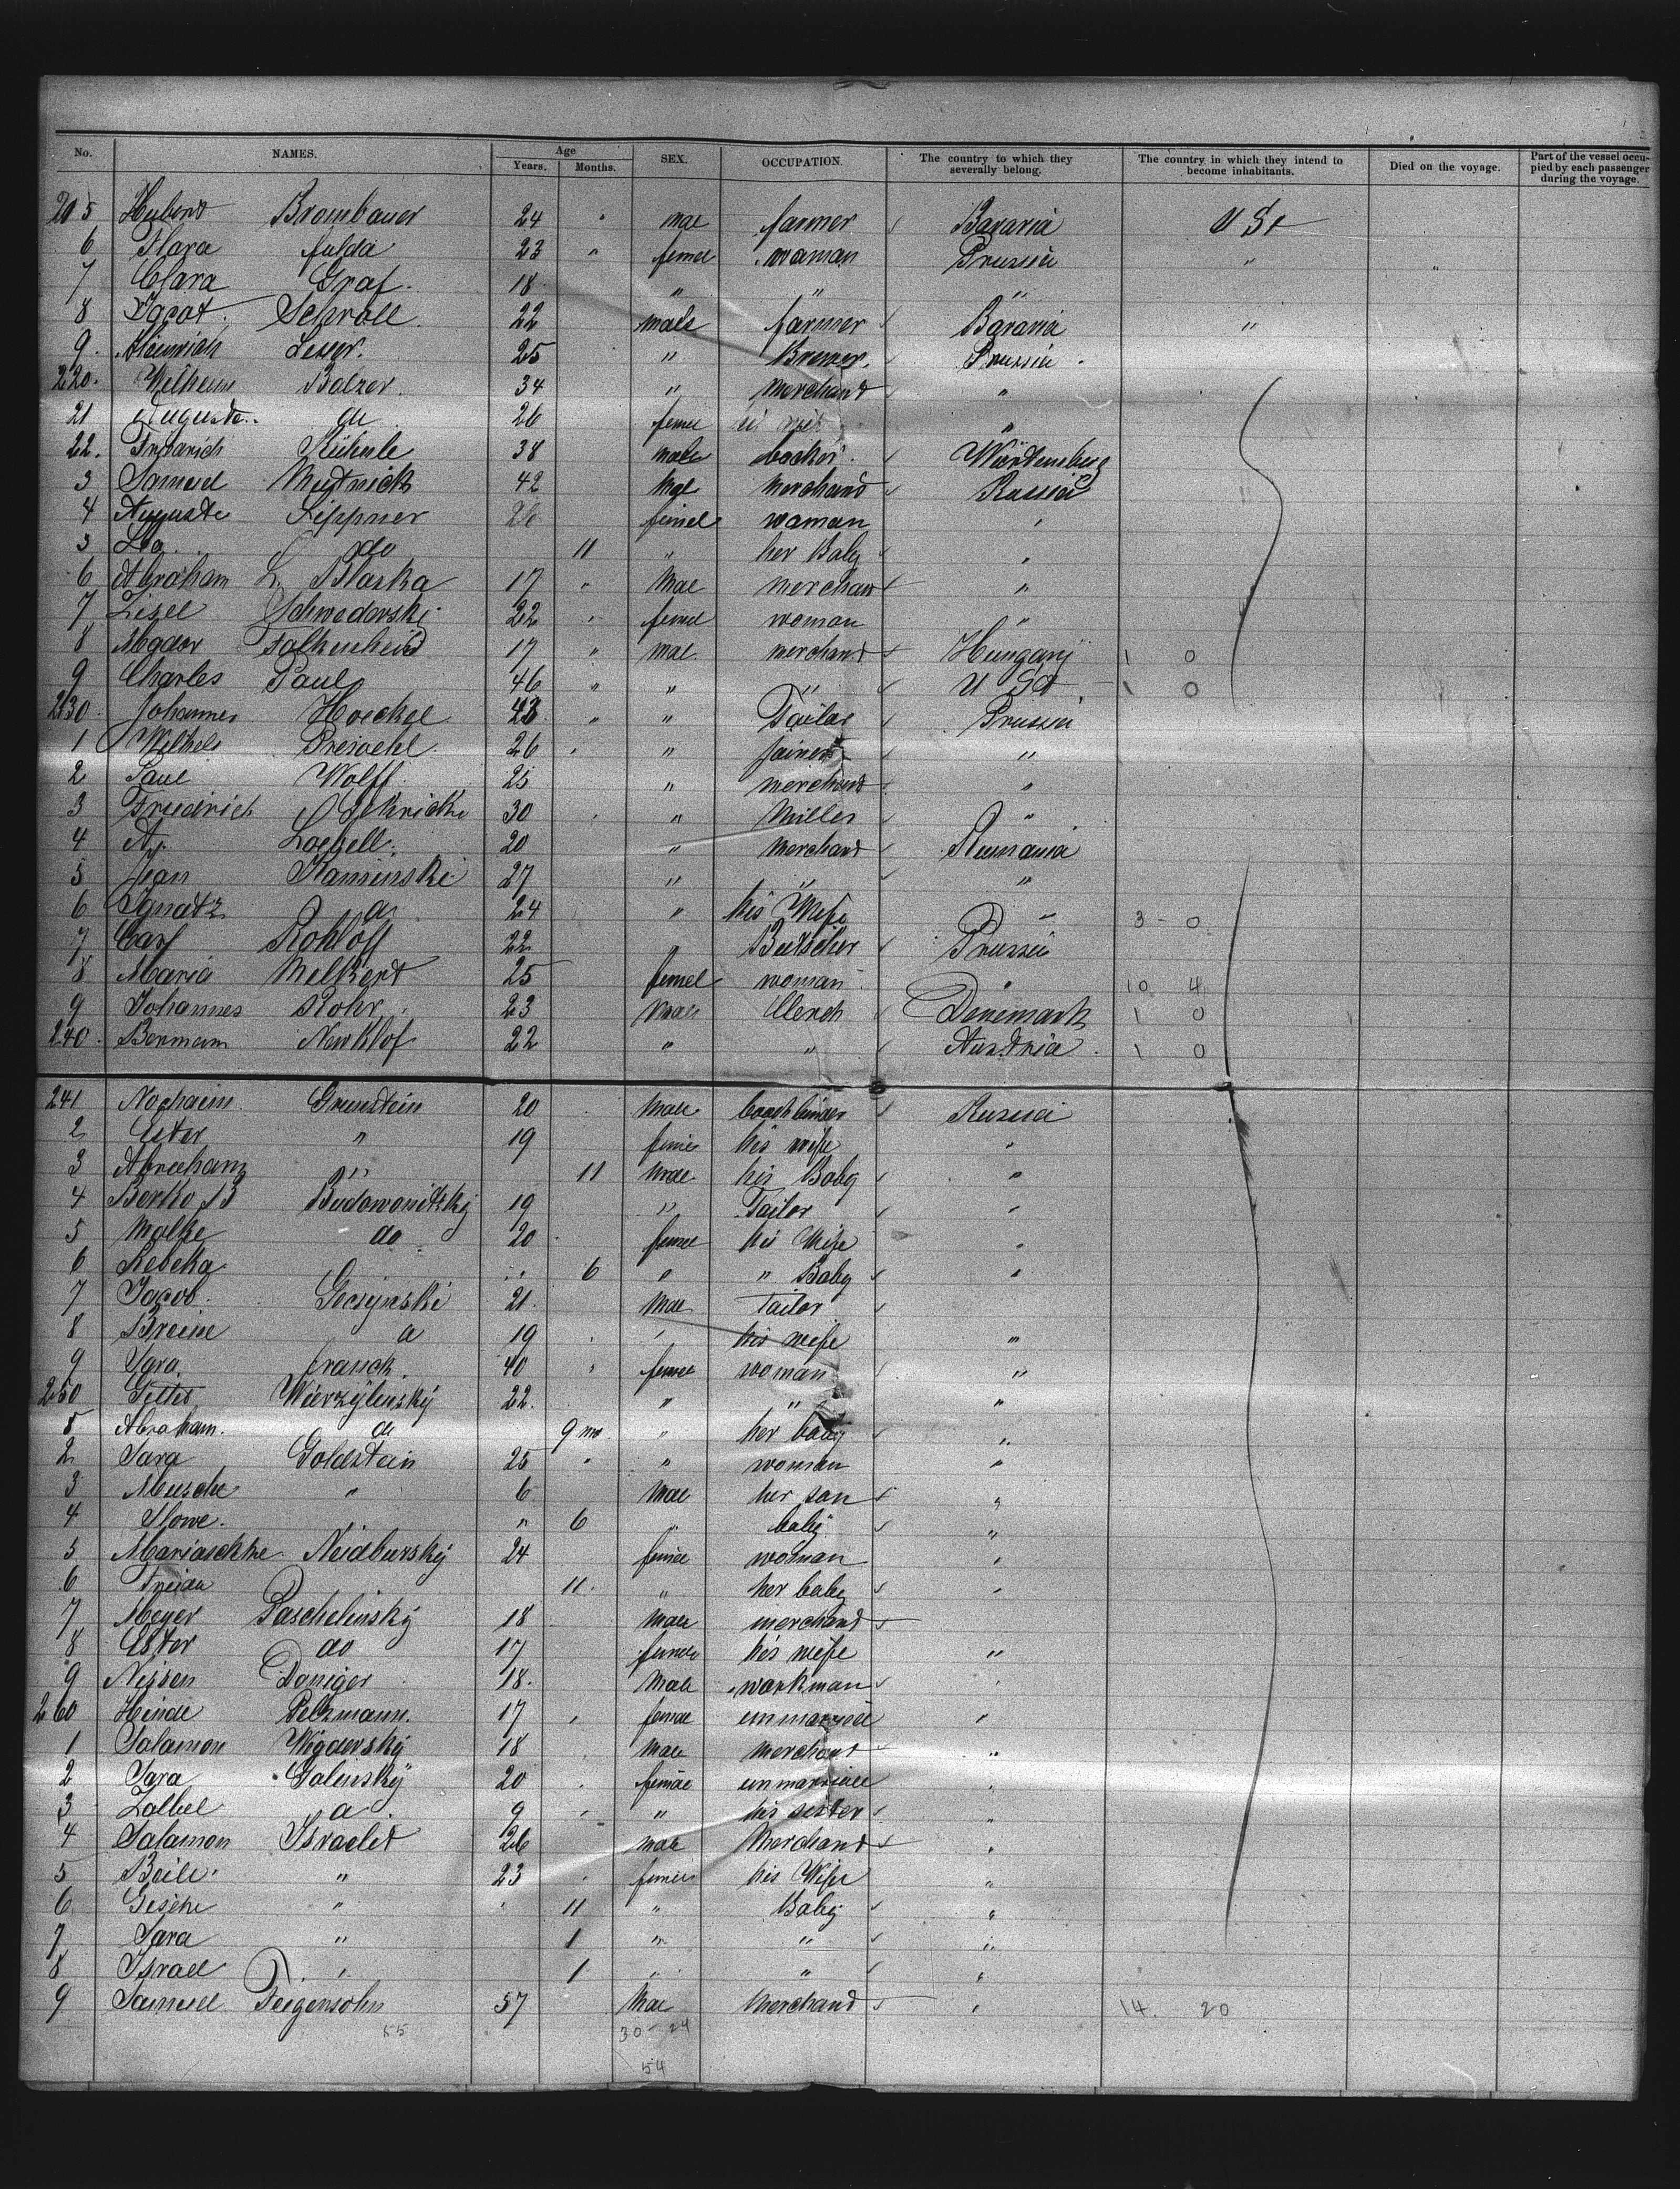 No. NAMES. Age Years. Months. SEX. OCCUPATION. The country to which they severally belong. The country in which they intend to become inhabitants. Died on the voyage. Part of the vessel occupied by each passenger during the voyage.
205 Hubert Brombauer 24 " mal farmer Bavaria U St
6 Flora fulda 23 " femel woman Prussia "
7 Clara Graf 18 " " "
8 Jacot Schroll 22 male farmer Bavaria "
9 Heinrich Leser 25 " Brewer Prussia
220 Wilhelm Balzer 34 " Merchand "
21 Auguste do 26 femel his wife "
22 Fridarich Küherle 38 male backer Würtemberg
3 Samuel Mutnick 42 Mal Merchand Russia
4 Auguste Lippner 26 femel woman "
5 Lea do 11 " her Baby "
6 Abraham L. Blaska 17 " Mal merchan "
7 Lisel Schwedorski 22 " femel woman "
8 Mador Falkenheid 17 " mal merchand Hungary 1 0
9 Charles Paul 46 " " " U St 1 0
230 Johannes Hoeckel 43 " " Tailor Prussia
1 Wilhel Preswehl 26 " " joiner "
2 Paul Wolff 25 " merchand "
3 Friedrich Schricke 30 " Miller "
4 A. Loebell 20 " Merchand Rumania
5 Jean Kaminski 27 " " "
6 Ignatz do 24 " his Wife " 3 - 0
7 Carl Rohloff 22 " Butscher Prussia
8 Maria Melkert 25 femel woman " 10 4
9 Johannes Rohr 23 male Clerch Denemark 1 0
240 Bermann Newklof 22 " " Austria 1 0
241 Nochaim Grunstein 20 Male boockbinder Russia
2 Ester " 19 femel his wife "
3 Abraham " 11 male his Baby "
4 Berko B Budowonitzky 19 " Tailor "
5 Malke do 20 femel his Wife "
6 Rebeka 6 " " Baby "
7 Jacob Gosynski 21 Mal Tailor
8 Breine a 19 " his wife "
9 Sara franck 40 " femel woman "
250 Gittes Wierzylinsky 22 " " "
5 Abraham do 9 mo " her baby "
2 Sara Goldstein 25 " " woman "
3 Musche " 6 Mal her son "
4 Slowe " 6 " baby "
5 Mariaschke Neidbursky 24 femel woman "
6 Freida 11 " her baby "
7 Meyer Paschelinsky 18 male merchand
8 Ester do 17 female his wife "
9 Nissen Daniger 18 Male workman "
260 Hinde Pelzmann 17 " female unmarried "
1 Salamon Wigdorsky 18 Male Merchant "
2 Sara Galinsky 20 female unmarried "
3 Zallel a 9 " " his sister "
4 Salamon Israelit 26 male Merchand "
5 Beile " 23 femel his Wife "
6 Gische " 11 " Baby "
7 Sara " 1 " " "
8 Israel " 1 " " "
9 Samuel Feigensohn 57 Mal Merchand " 14. 20
55 30 - 24
54